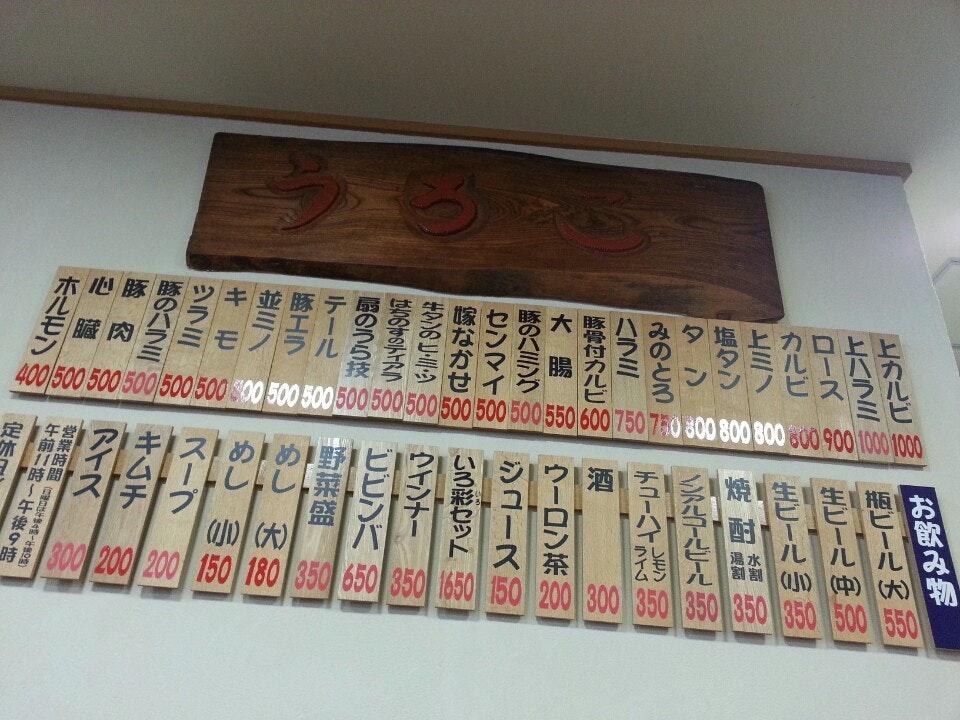 うろこ
上カルビ 1000
上ハラミ 1000
ロース 900
カルビ 800
上ミノ 800
塩タン 800
タン 800
みのとろ 750
ハラミ 750
豚骨付カルビ 600
大腸 550
豚のハミング 500
センマイ 500
嫁なかせ 500
牛タンのヒ・ミ・ツ 500
はちのすのティアラ 500
扇のうら技 500
テール 500
豚エラ 500
並ミノ 800
キモ 500
ツラミ 500
豚のハラミ 500
豚肉 500
心臓 500
ホルモン 400
お飲み物
瓶ビール(大) 550
生ビール(中) 500
生ビール(小) 350
焼酎 水割 湯割 350
ノンアルコールビール 350
チューハイ レモン ライム 350
酒 300
ウーロン茶 200
ジュース 150
いろ彩セット 1650
ウインナー 350
ビビンバ 650
野菜盛 350
めし(大) 180
めし(小) 150
スープ 200
キムチ 200
アイス 300
営業時間
午前11時〜午後9時
定休日